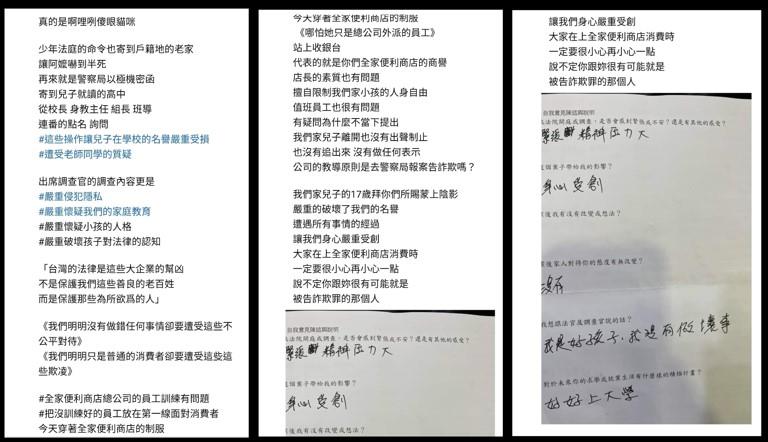 真的是啊哩咧傻眼貓咪
少年法庭的命令也寄到戶籍地的老家
讓阿嬤嚇到半死
再來就是警察局以極機密函
寄到兒子就讀的高中
從校長 身教主任 組長 班導
連番的點名 詢問
#這些操作讓兒子在學校的名譽嚴重受損
#遭受老師同學的質疑
出席調查官的調查內容更是
#嚴重侵犯隱私
#嚴重懷疑我們的家庭教育
#嚴重懷疑小孩的人格
#嚴重破壞孩子對法律的認知
「台灣的法律是這些大企業的幫凶
不是保護我們這些善良的老百姓
而是保護那些為所欲為的人」
《我們明明沒有做錯任何事情卻要遭受這些不
公平對待》
《我們明明只是普通的消費者卻要遭受這些這
些欺凌》
#全家便利商店總公司的員工訓練有問題
#把沒訓練好的員工放在第一線面對消費者
今天穿著全家便利商店的制服
今天穿著全家便利商店的制服
《哪怕她只是總公司外派的員工》
站上收銀台
代表的就是你們全家便利商店的商譽
店長的素質也有問題
擅自限制我們家小孩的人身自由
值班員工也很有問題
有疑問為什麼不當下提出
我們家兒子離開也沒有出聲制止
也沒有追出來 沒有做任何表示
公司的教導原則是去警察局報案告詐欺嗎？
我們家兒子的17歲拜你們所賜蒙上陰影
嚴重的破壞了我們的名譽
遭遇所有事情的經過
讓我們身心嚴重受創
大家在上全家便利商店消費時
一定要很小心再小心一點
說不定你跟妳很有可能就是
被告詐欺罪的那個人
自我意見陳述與說明
法院開庭或調查，是否會感到緊張或不安？還是有其他的感受？
緊張 精神壓力大
這個案子帶給我的影響？
身心受創
後我有沒有改變或想法？
讓我們身心嚴重受創
大家在上全家便利商店消費時
一定要很小心再小心一點
說不定你跟妳很有可能就是
被告詐欺罪的那個人
自我意見陳述與說明
法院開庭或調查，是否會感到緊張或不安？還是有其他的感受？
緊張 精神壓力大
這個案子帶給我的影響？
身心受創
後我有沒有改變或想法？
後家人對待你的態度有無改變？
沒有
我想跟法官及調查官說的話？
我是好孩子,我沒有做壞事
對於未來你的求學或就業生涯有什麼樣的積極計畫？
好好上大學